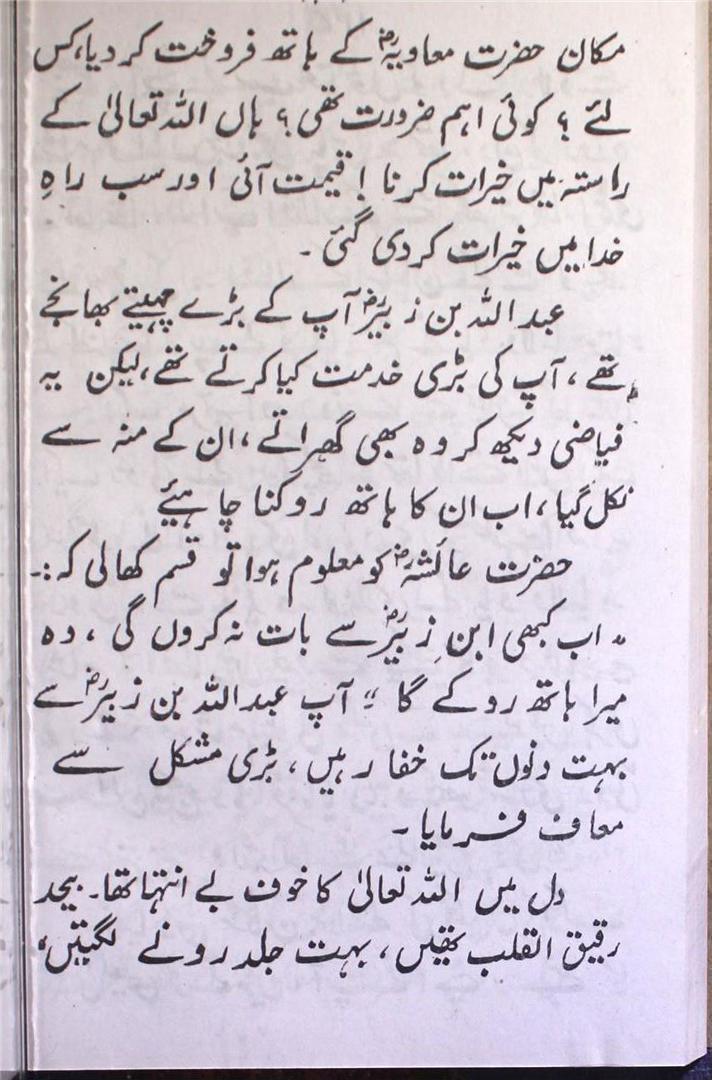 مکان حضرت معاویہؓ کے ہاتھ فروخت کر دیا، کس
لئے ؟ کوئی اہم ضرورت تھی ؟ ہاں اللہ تعالیٰ کے
راستہ میں خیرات کرنا ! قیمت آئی اور سب راہِ
خدا میں خیرات کر دی گئی ۔
عبد اللہ بن زبیرؓ آپ کے بڑے چہیتے بھانجے
تھے ، آپ کی بڑی خدمت کیا کرتے تھے، لیکن یہ
فیاضی دیکھ کر وہ بھی گھبراتے ، ان کے منہ سے
نکل گیا ، اب ان کا ہاتھ روکنا چاہیئے
حضرت عائشہؓ کو معلوم ہوا تو قسم کھالی کہ :۔
" اب کبھی ابن زبیرؓ سے بات نہ کروں گی ، وہ
میرا ہاتھ روکے گا " آپ عبداللہ بن زبیرؓ سے
بہت دنوں تک خفا رہیں ، بڑی مشکل سے
معاف فرمایا ۔
دل میں اللہ تعالیٰ کا خوف بے انتہا تھا ۔ بیحد
رقیق القلب تھیں ، بہت جلد رونے لگتیں ،